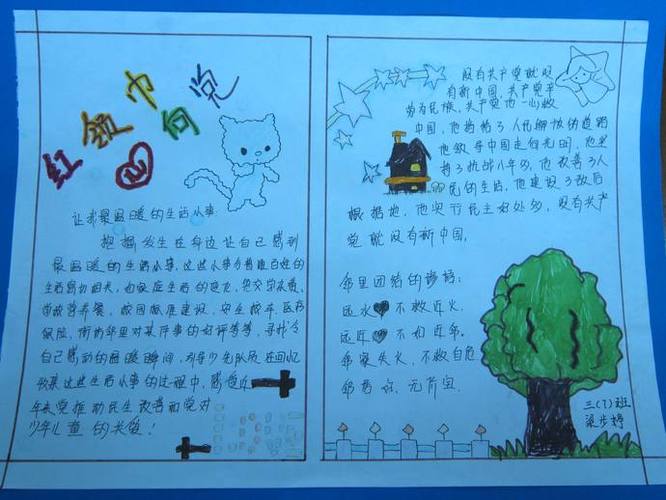 红领巾心向党
让我最温暖的生活小事:
把握发生在身边让自己感到
最温暖的生活小事,这些小事与普通百姓的
生活密切相关,如家庭生活的变化,
营养餐,校园标准建设,安全校车,医疗
保险,街坊邻里对某件事的好评等等,寻找令
自己感动的温暖瞬间,引导少先队员在回忆
收集这些生活小事的过程中,感受近
年来党推动民生改善和党对
少年儿童的关爱!
没有共产党就没
有新中国,共产党辛
劳为民族,共产党他一心救
中国,他指给了人民解放的道路
他领导中国走向光明,他坚
持了抗战八年多,他改善了人
民的生活,他建设了敌后
根据地,他实行民主好处多,没有共产
党就没有新中国。
邻里团结的谚语:
远水 不救近火。
远近 不如近邻。
邻家失火,不救自危
邻 好 无 宝
三(7)班
梁步婷